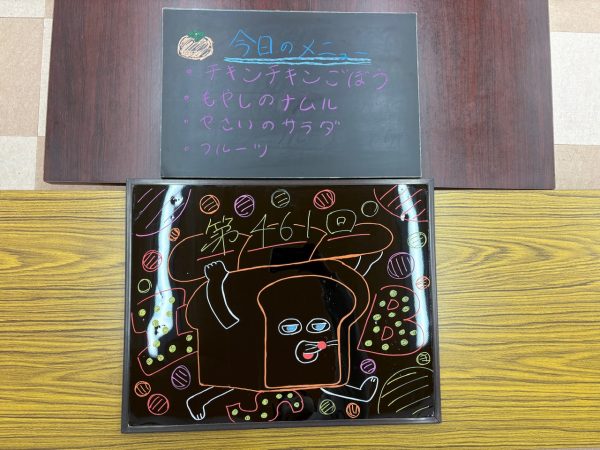 今日のメニュー
・チキンチキンごぼう
・もやしのナムル
・やさいのサラダ
・フルーツ
第461回